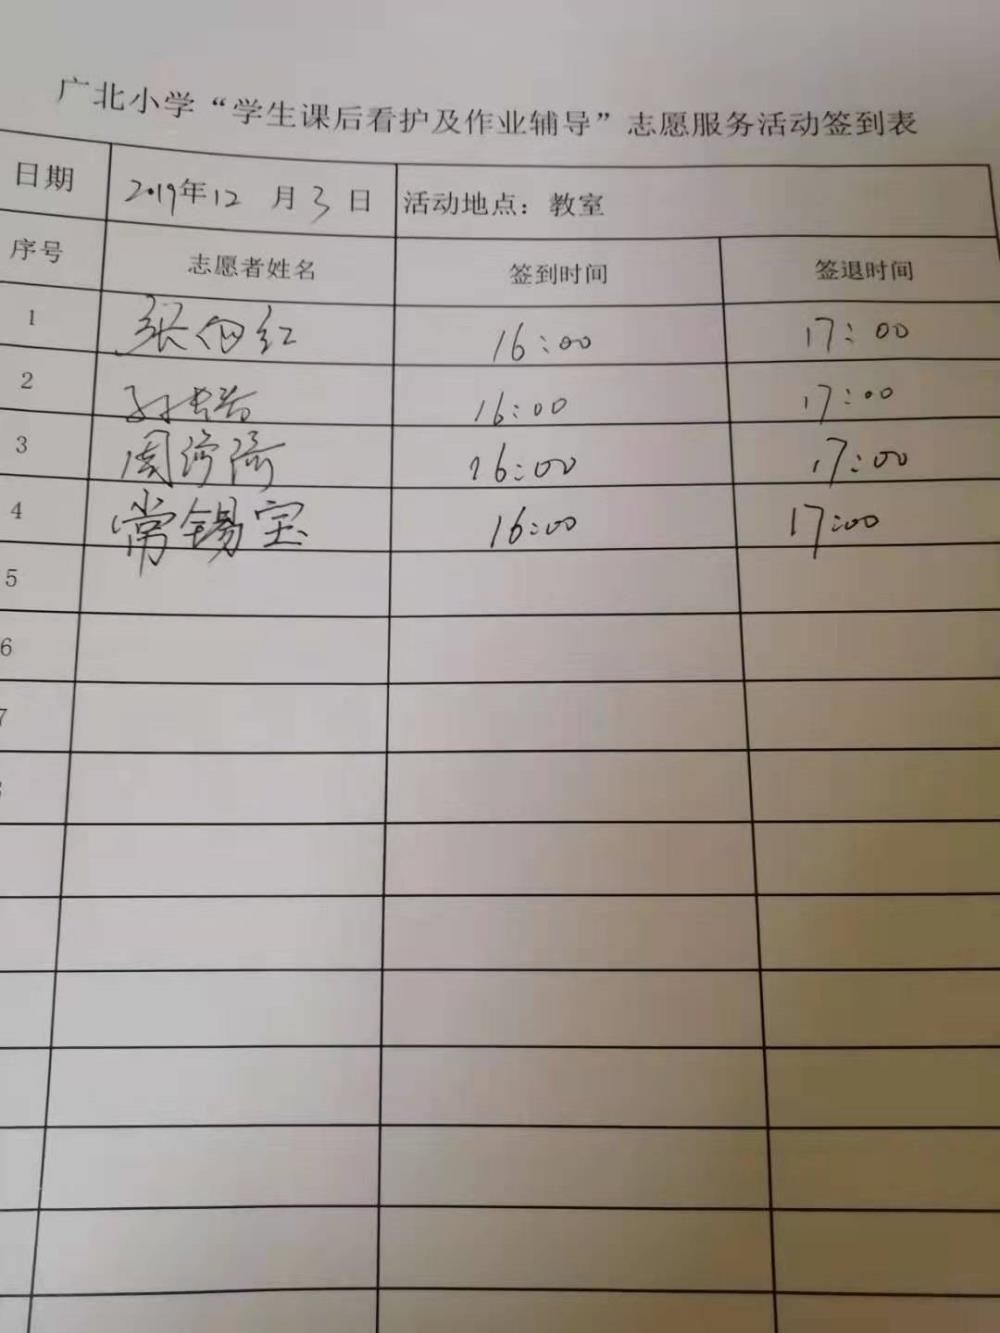 广北小学“学生课后看护及作业辅导”志愿服务活动签到表
日期 2019年12月3日 活动地点：教室
序号 志愿者姓名 签到时间 签退时间
1 张伯红 16:00 17:00
2 孙 16:00 17:00
3 周 16:00 17:00
4 常锡宝 16:00 17:00
5
6
7